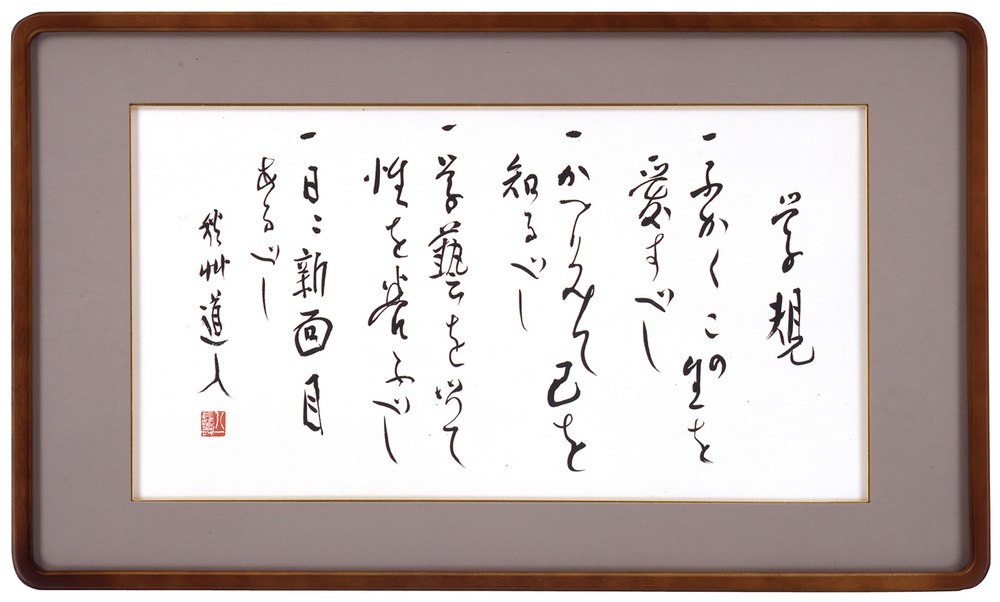 学規
一ふかくこの生を
愛すべし
一かへりみて己を
知るべし
一学藝を以て
性を養ふべし
一日々新面目
あるべし
秋艸道人